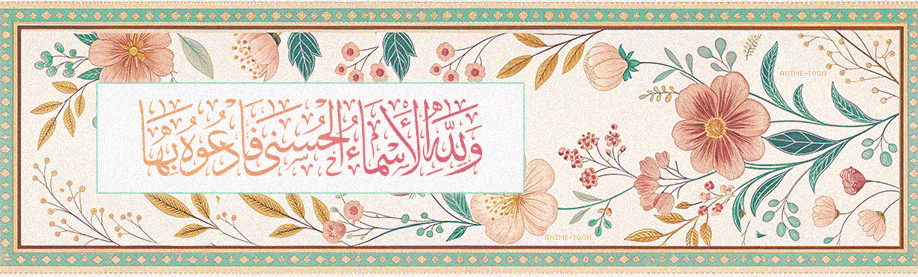 وَلِلَّهِ الْأَسْمَاءُ الْحُسْنَى فَادْعُوهُ بِهَا
ANIME-TOON
ANIME-TOON